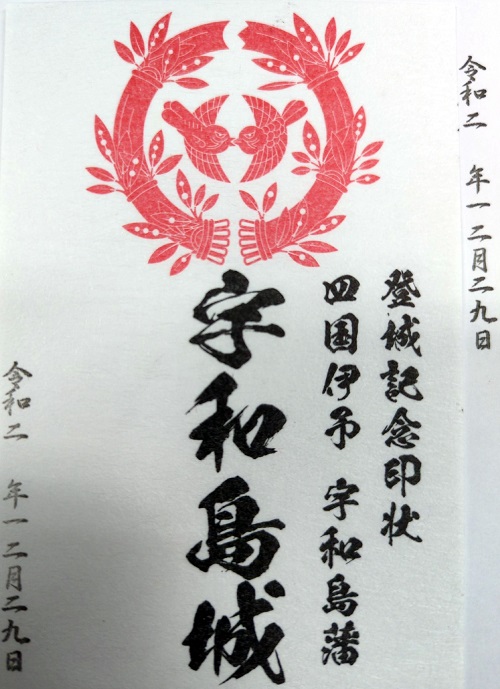 令和二 年一二月二九日
登城記念印状
四国伊予 宇和島藩
宇和島城
令和二 年一二月二九日